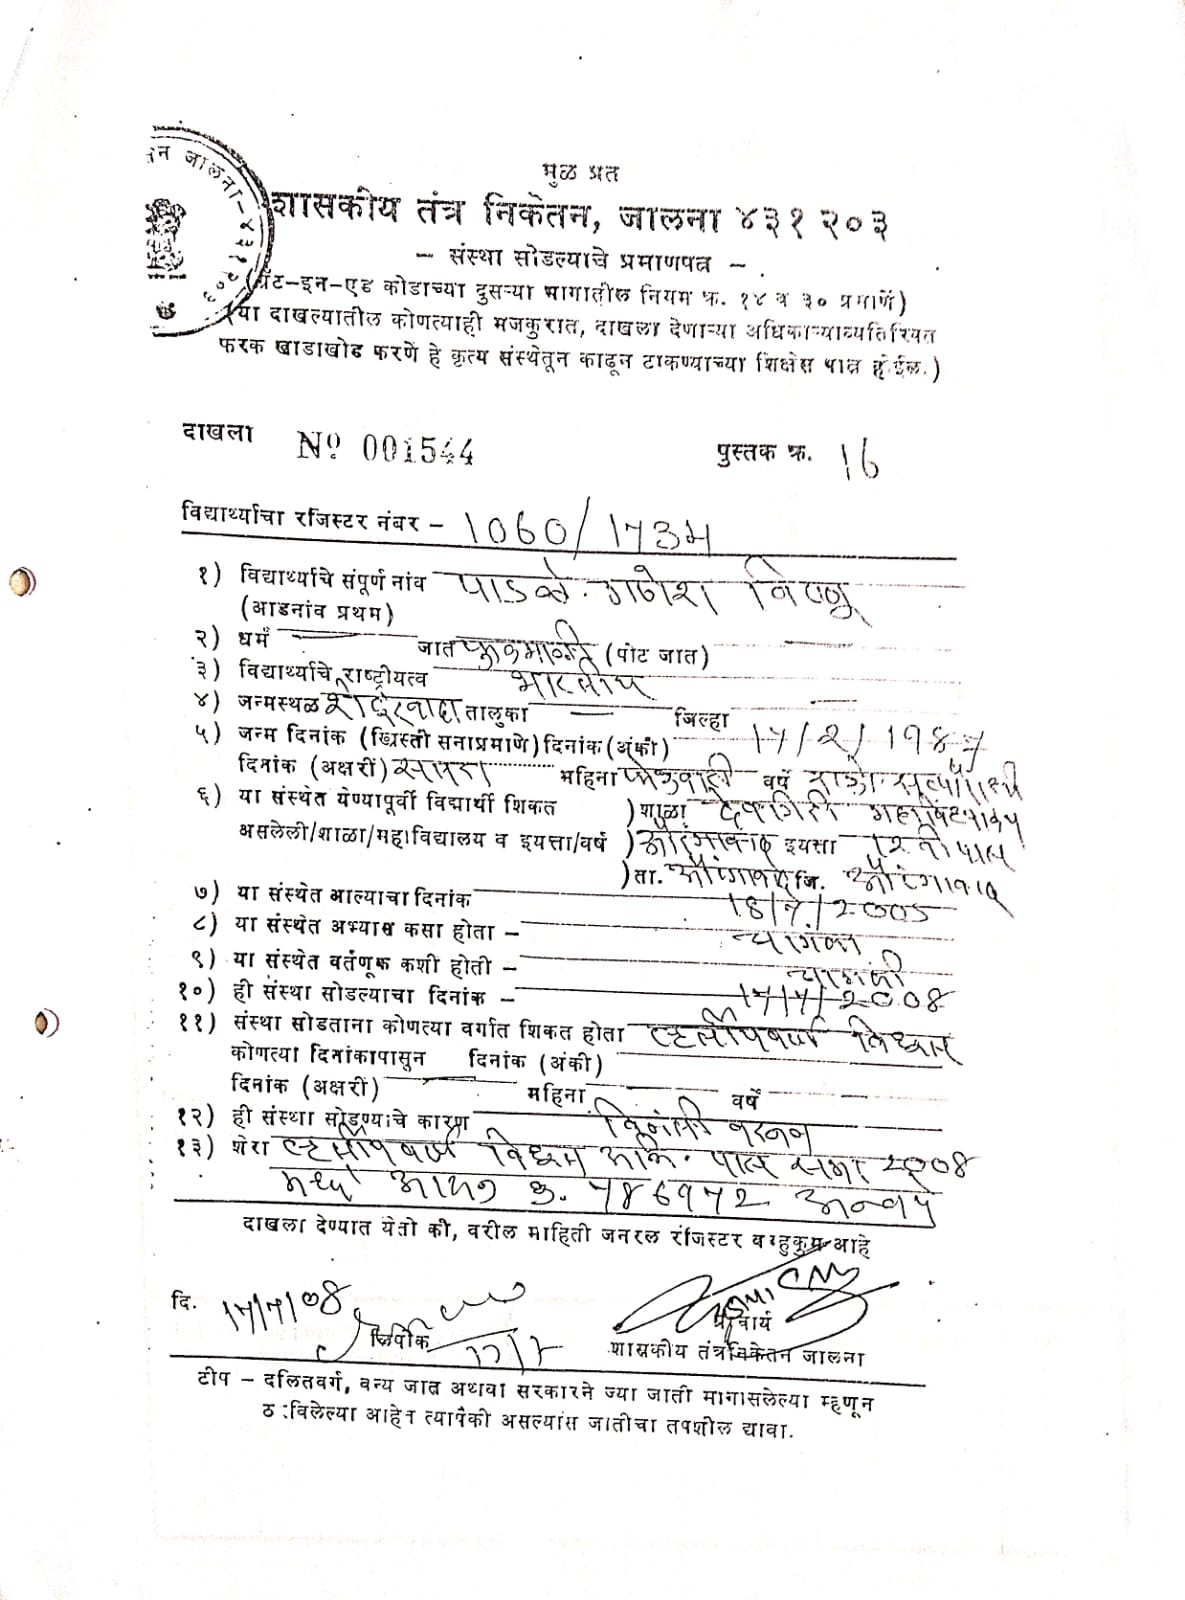 न जालना-४३१२०३
मुळ प्रत
शासकीय तंत्र निकेतन, जालना ४३१२०३
– संस्था सोडल्याचे प्रमाणपत्र –
(ग्रँट-इन-एड कोडाच्या दुसऱ्या भागातील नियम क्र. १४ व ३० प्रमाणें)
(या दाखल्यातील कोणत्याही मजकुरात, दाखला देणाऱ्या अधिकाऱ्याव्यतिरिक्त
फरक खाडाखोड करणें हे कृत्य संस्थेतून काढून टाकण्याच्या शिक्षेस पात्र होईल.)
दाखला Nº 001544 पुस्तक क्र. 16
विद्यार्थ्याचा रजिस्टर नंबर – 1060/
१) विद्यार्थ्याचे संपूर्ण नांव पाडळे गणेश विष्णू
(आडनांव प्रथम)
२) धर्म — जात फुलमाळी (पोट जात)
३) विद्यार्थ्याचे राष्ट्रीयत्व भारतीय
४) जन्मस्थळ तालुका — जिल्हा
५) जन्म दिनांक (ख्रिस्ती सनाप्रमाणे) दिनांक (अंकी) 17/2/1987
दिनांक (अक्षरीं) सतरा महिना फेब्रुवारी वर्षे
६) या संस्थेत येण्यापूर्वी विद्यार्थी शिकत ) शाळा देवगिरी महाविद्यालय
असलेली/शाळा/महाविद्यालय व इयत्ता/वर्ष ) औरंगाबाद इयत्ता 12 वी पास
) ता. औरंगाबाद जि. औरंगाबाद
७) या संस्थेत आल्याचा दिनांक 18/7/2005
८) या संस्थेत अभ्यास कसा होता – चांगला
९) या संस्थेत वर्तणूक कशी होती – चांगली
१०) ही संस्था सोडल्याचा दिनांक – 17/7/2008
११) संस्था सोडताना कोणत्या वर्गात शिकत होता तृतीय वर्ष विद्युत
कोणत्या दिनांकापासुन दिनांक (अंकी)
दिनांक (अक्षरीं) — महिना वर्षे
१२) ही संस्था सोडण्याचे कारण विनंती वरुन
१३) शेरा तृतीय वर्ष विद्युत पास 2008
मध्ये क्र. अन्वये
दाखला देण्यात येतो की, वरील माहिती जनरल रजिस्टर बरहुकुम आहे
दि. 17/7/08
लिपीक
प्राचार्य
शासकीय तंत्रनिकेतन जालना
टीप – दलितवर्ग, वन्य जात अथवा सरकारने ज्या जाती मागासलेल्या म्हणून
ठरविलेल्या आहेत त्यापैकी असल्यांस जातीचा तपशील द्यावा.